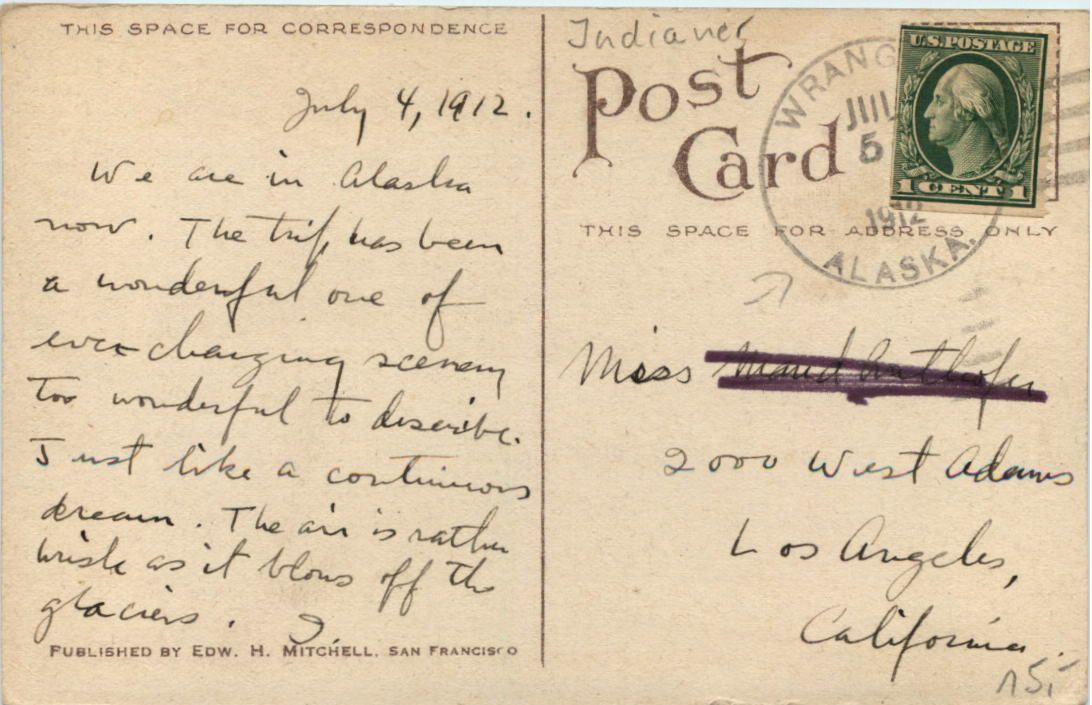 THIS SPACE FOR CORRESPONDENCE
July 4, 1912.
We are in Alaska
now. The trip has been
a wonderful one of
ever changing scenery
too wonderful to describe.
Just like a continuous
dream. The air is rather
brisk as it blows off the
glaciers. J.
PUBLISHED BY EDW. H. MITCHELL, SAN FRANCISCO
Indianer
Post
Card
WRANG
JUL
5
1912
ALASKA.
U.S. POSTAGE
1 CENT 1
THIS SPACE FOR ADDRESS ONLY
Miss Maud
2000 West Adams
Los Angeles,
California.